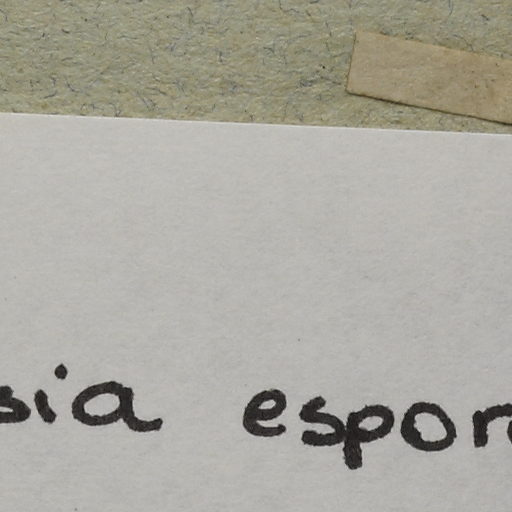 sia espor